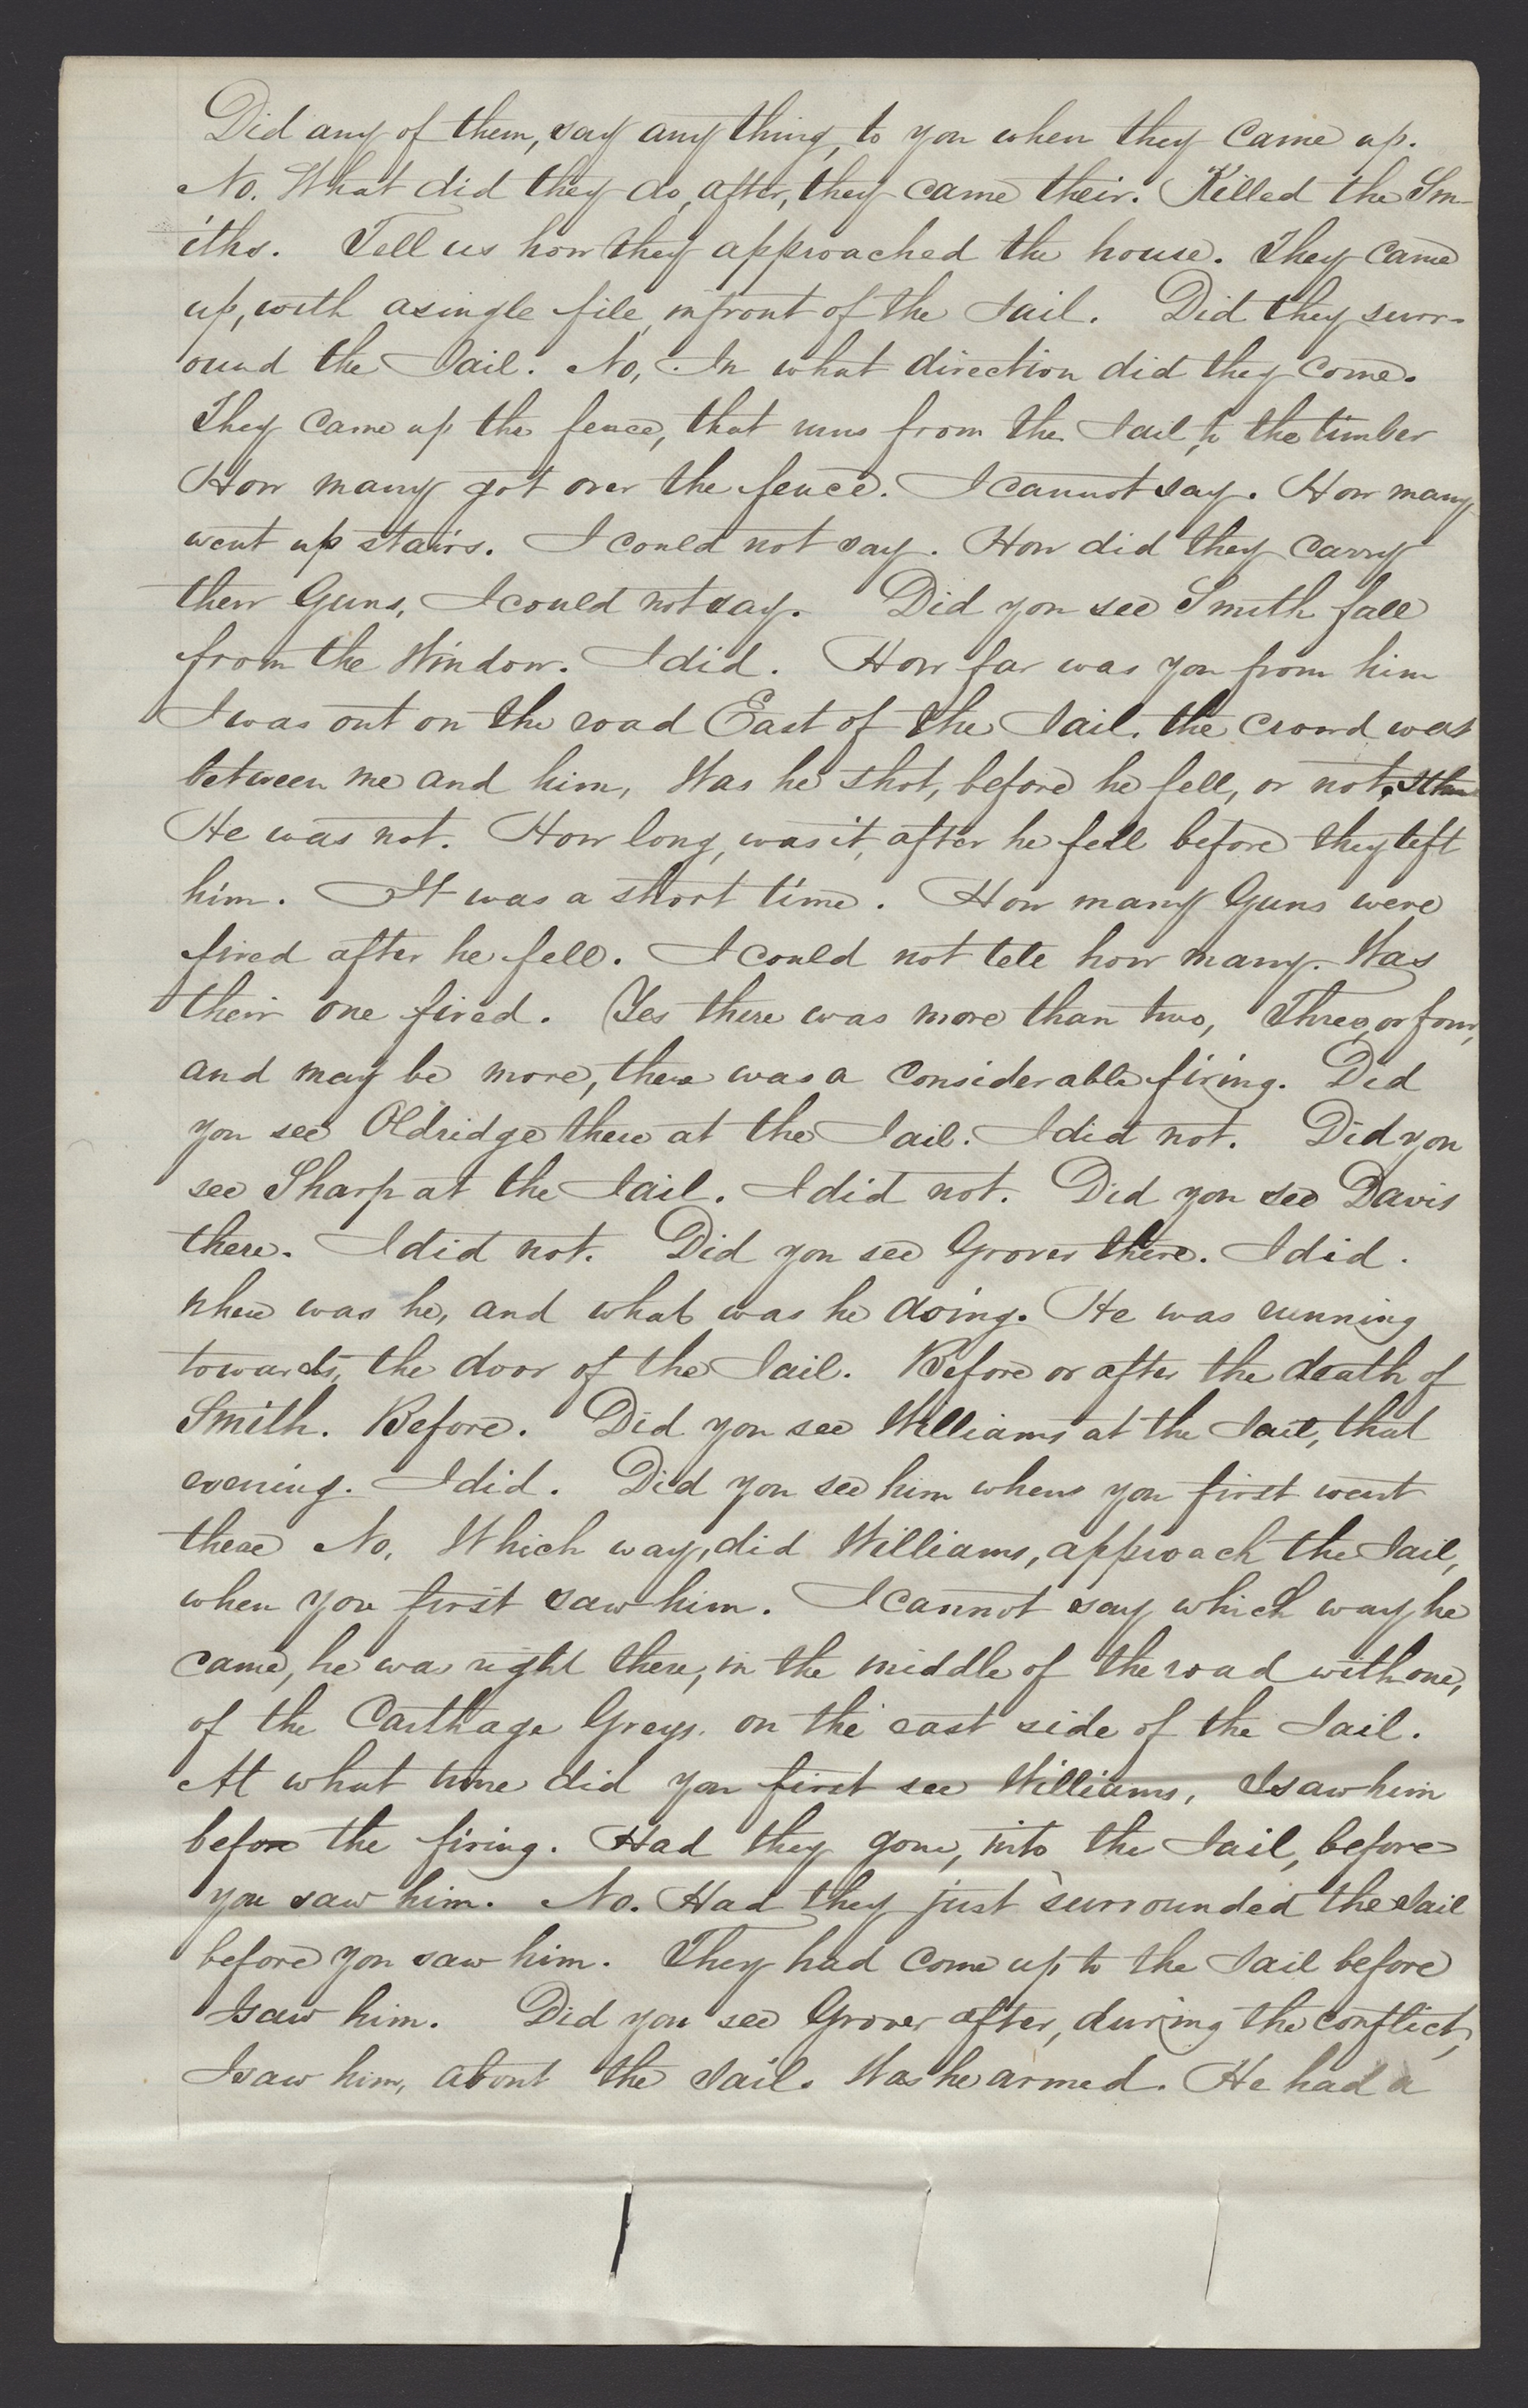 Did any of them, say any thing, to you when they came up.
No. What did they do, after, they came their. Killed the Sm-
iths. Tell us how they approached the house. They came
up, with a single file, in front of the Jail. Did they surr-
ound the Jail. No, In what direction did they come.
They came up the fence, that runs from the Jail, to the timber
How many got over the fence. I cannot say. How many
went up stairs. I could not say. How did they carry
their Guns, I could not say. Did you see Smith fall
from the Window. I did. How far was you from him
I was out on the road East of the Jail. the crowd was
between me and him, Was he shot, before he fell, or not,
He was not. How long, was it, after he fell before they left
him. It was a short time. How many Guns were
fired after he fell. I could not tell how many. Was
their one fired. Yes there was more than two, Three, or four,
and may be more, there was a considerable firing. Did
you see Oldridge there at the Jail. I did not. Did you
see Sharp at the Jail. I did not. Did you see Davis
there. I did not. Did you see Grover there. I did.
where was he, and what was he doing. He was running
towards, the door of the Jail. Before or after the death of
Smith. Before. Did you see Williams at the Jail, that
evening. I did. Did you see him when you first went
there No. Which way, did Williams, approach the Jail,
when you first saw him. I cannot say which way he
came, he was right there, in the middle of the road with one,
of the Carthage Greys. on the east side of the Jail.
At what time did you first see Williams, I saw him
before the firing. Had they gone, into the Jail, before
you saw him. No. Had they just surrounded the Jail
before you saw him. They had come up to the Jail before
I saw him. Did you see Grover after, during the conflict,
I saw him, about the Jail. Was he armed. He had a